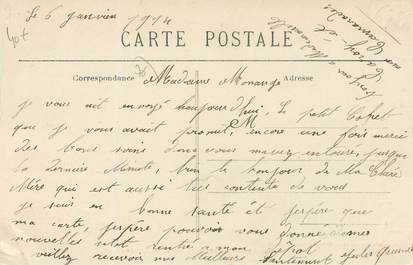 Le 6 janvier 1914
CARTE POSTALE
Correspondance
Adresse
Madame Morange
je vous ait envoyé haujourd'hui, Le petit Cofret
que je vous avait promit, encore une fois merci
des bons soins dont vous mavez entouré, jusqua
la derniere Minute, bien le bonjour de Ma Chère
Mère qui est aussi tres contente de vous
je suis en bonne santé et jespère que
ma carte, jespere pouvoir vous donner
nouvelles sitot rentré a mon
veuillez recevoir mes Meilleurs Sentiments Jules